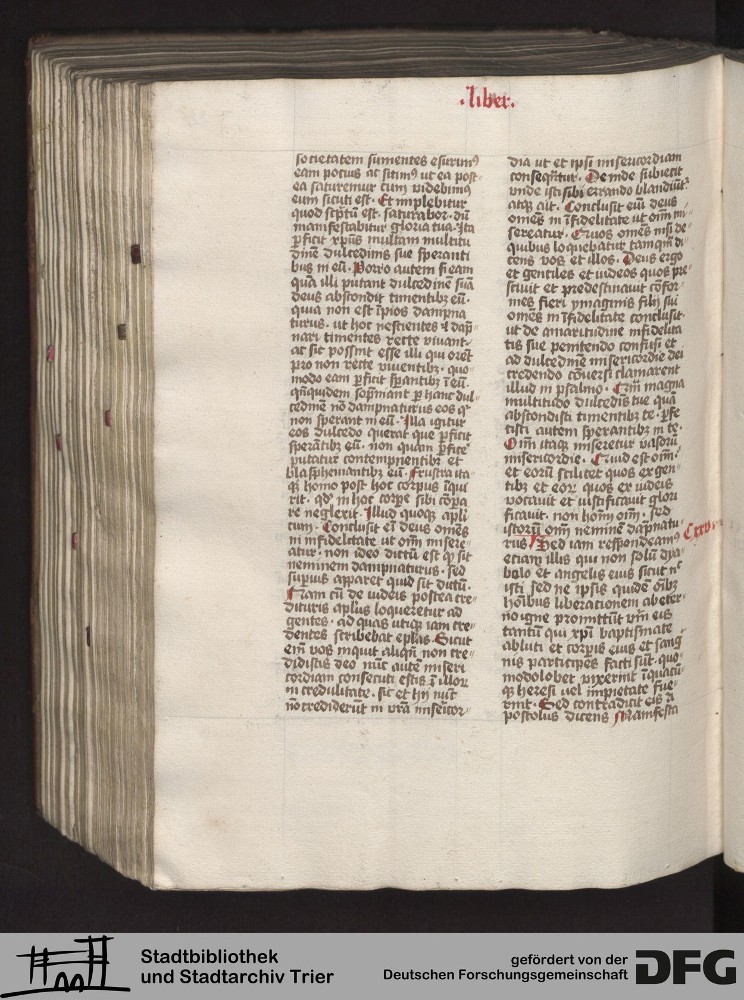 ·liber·
societatem sumentes esurim9
eam potius ac sitim9 ut ea post
ea saturemur cum videbim9
eum sicuti est· Et implebitur
quod scptū est· saturabor· dū
manifestabitur gloria tua· Ita
ꝑficit xp̄us multam multitu
dinē dulcedinis sue speranti
bus in eū· Porro autem si eam
quā illi putant dulcedinē suā
deus abscondit timentibꝫ eū·
quia non est īpios dampna
turus· ut hoc nescientes ⁊ dāp
nari timentes recte vivant·
ac sic possint esse illi qui orēt
pro non recte viventibꝫ· quo
modo eam ꝑficit sꝑantibꝫ ī eū·
qn̄quidem sopniant ꝑ hanc dul
cedinē nō dāpnaturus eos q̄
non sperant in eū· Illa igitur
eos dulcedo querat que ꝑficit
sperātibꝫ eū· non quam ꝑfice
putatur contempnentibꝫ et
blasphemantibꝫ eū· Frustra ita
qꝫ homo post hoc corpus īqui
rit· qd̄ in hoc corpe sibi cōpa
re neglexit· Illud quoqꝫ apli
cum· Conclusit ei deus omēs
in infidelitate ut om̄i misere
atur· non ideo dictū est q̄ sit
neminem dampnaturus· sed
supius apparet quid sit dictū·
Nam cū de iudeis postea cre
dituris apl̄us loqueretur ad
gentes· ad quas utiqꝫ iam cre
dentes scribebat epl̄as· Sicut
eī vos inquit aliqn̄ non cre
didistis deo nūc autē miseri
cordiam consecuti estis ī illor
incredulitate· sic et hij nūc
nō crediderūt in vr̄a misēicor
dia ut et ipsi misericordiam
conseqn̄tur· Deinde subiecit
unde isti sibi errando blandiūt·
atqꝫ ait· Conclusit eī deus
omēs in īfidelitate ut om̄i mi
sereatur· Quos omēs nisi de
quibus loquebatur tamqm̄ di
cens vos et illos· Deus ergo
et gentiles et iudeos quos pre
scivit et predestinavit cōfor
mes fieri ymaginis filij sui
omēs in īfidelitate conclusit·
ut de amaritudine īfidelita
tis sue penitendo confusi et
ad dulcedinē misericordie dei
credendo cōuersi clamarent
illud in psalmo· Qm̄ magna
multitudo dulcedīs tue quā
abscondisti timentibꝫ te· ꝑfe
cisti autem sperantibꝫ in te·
Om̄i itaqꝫ miseretur vasorū
misericordie· Quid est om̄i·
et eorū scilicet quos ex gen
tibꝫ et eorꝫ quos ex iudeis
vocavit et iustificavit glori
ficavit· non hom̄ om̄i· sed
istorū om̄i neminē dāpnatu
rus· Sed iam respondeam9
Cxxv·
etiam illis qui non solū dya
bolo et angelis eius sicut nͨ
isti sed ne ipsis quidē om̄bꝫ
hoībus liberationem ab eter
no igne promittūt· vm̄ eis
tantū qui xpi baptismate
abluti et corpis eius et sang
nis participes facti sūt· quo
modolibet vixerint ī quacū
qꝫ heresi vel impietate fue
rint· Sed contradicit eis a
postolus dicens Manifesta
Stadtbibliothek
und Stadtarchiv Trier
gefördert von der
Deutschen Forschungsgemeinschaft
DFG